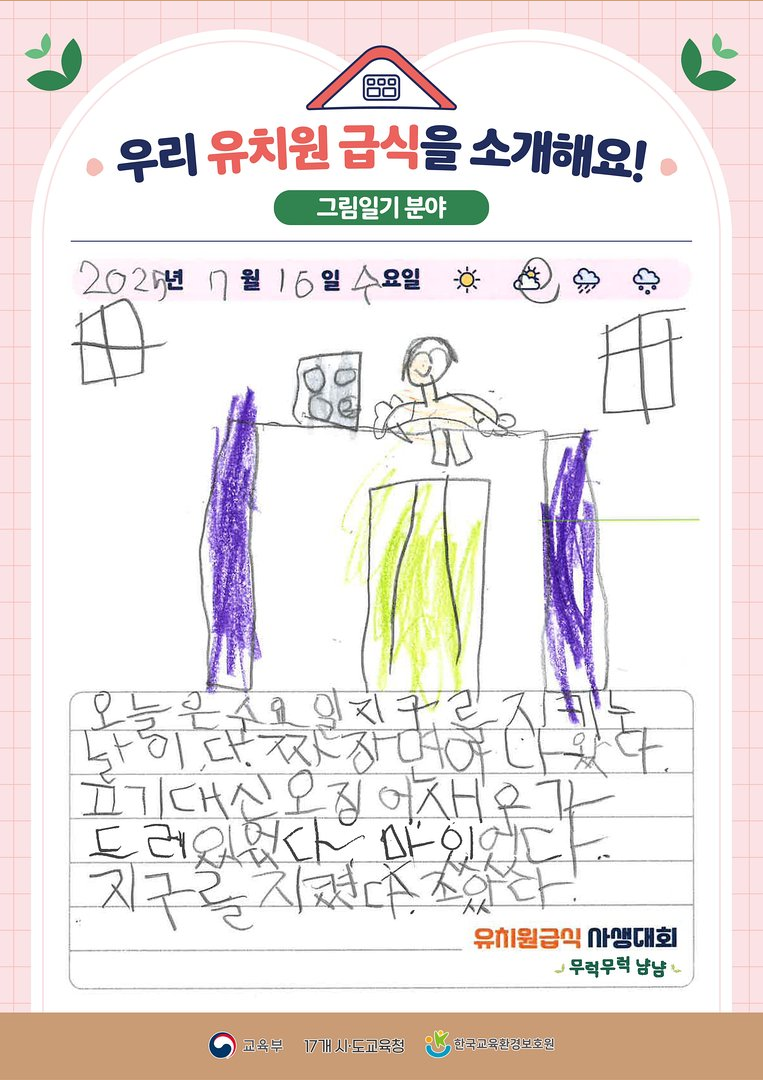 우리 유치원 급식을 소개해요!
그림일기 분야
2025년 7월 16일 수요일
오늘은수요일지구를지키는
날이다.짜장면이나왔다.
끄기대신오징어,새우가
드레있었다~마이었다.
지구를지켰다.조았다.
유치원급식 사생대회
무럭무럭 냠냠
교육부 17개 시·도교육청 한국교육환경보호원